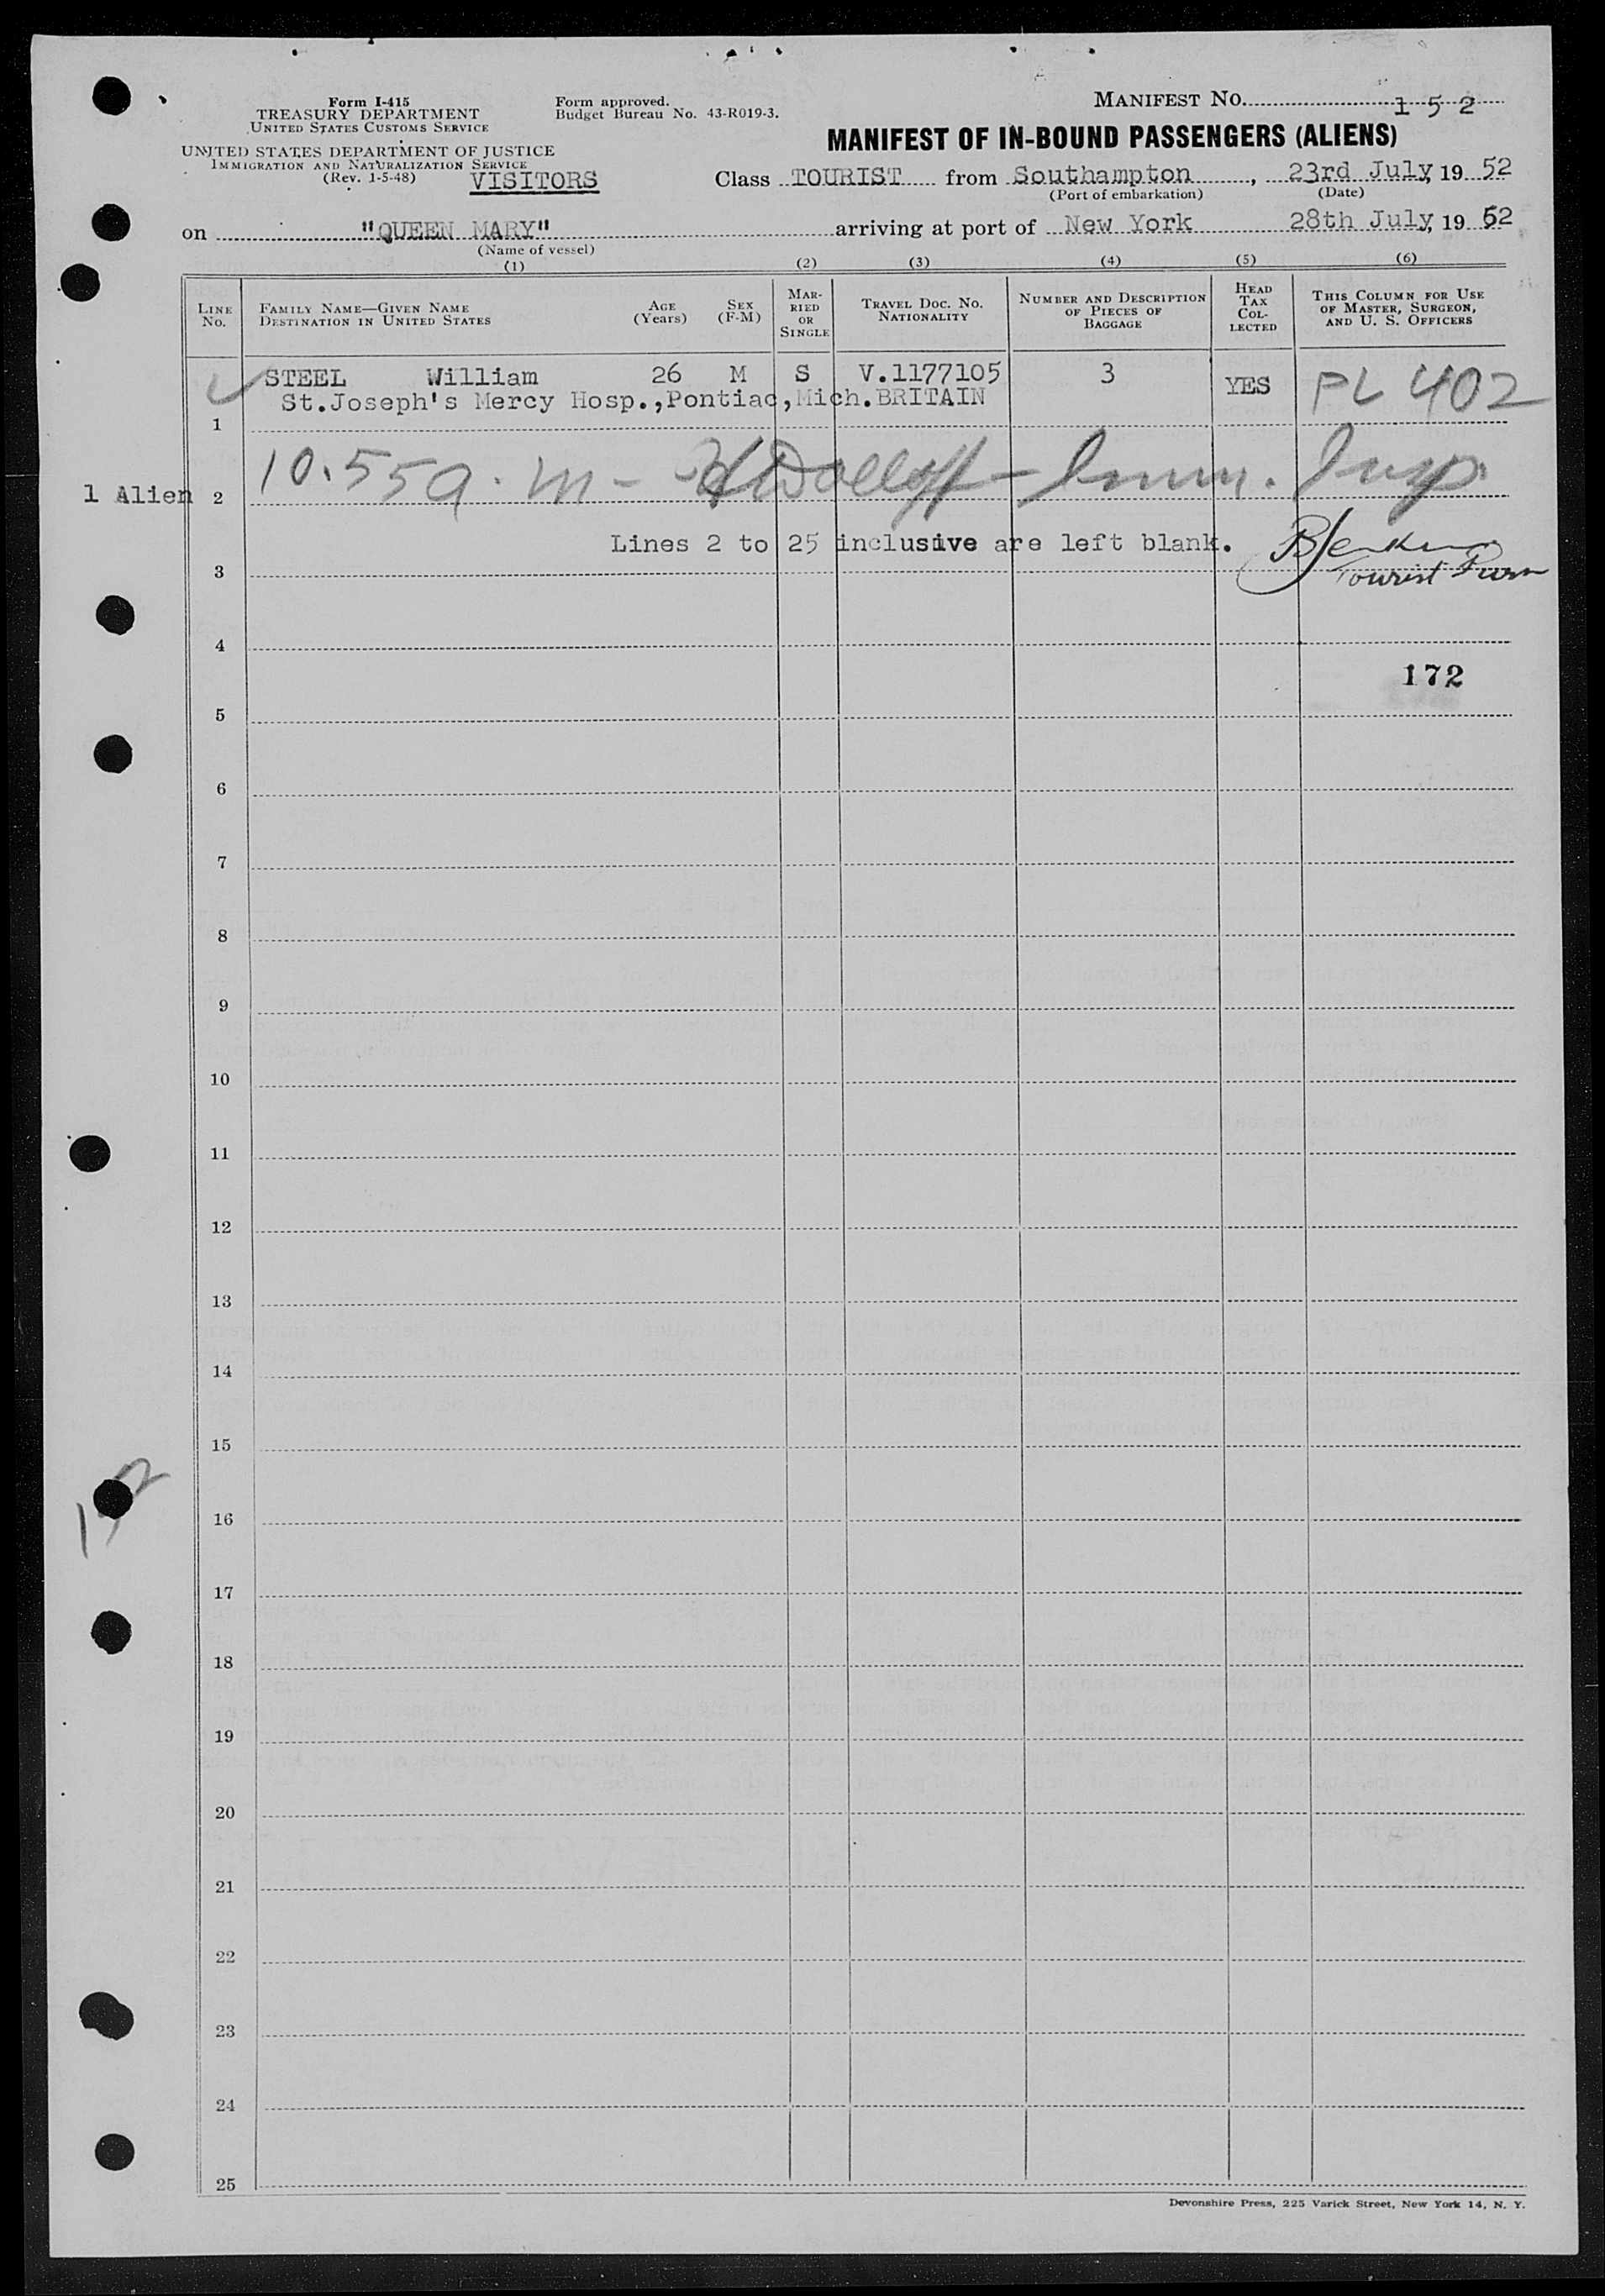 Form I-415
TREASURY DEPARTMENT
UNITED STATES CUSTOMS SERVICE
UNITED STATES DEPARTMENT OF JUSTICE
IMMIGRATION AND NATURALIZATION SERVICE
(Rev. 1-5-48) VISITORS
Form approved.
Budget Bureau No. 43-R019-3.
MANIFEST NO. 152
MANIFEST OF IN-BOUND PASSENGERS (ALIENS)
Class TOURIST from Southampton, 23rd July, 19 52
(Port of embarkation) (Date)
on "QUEEN MARY" arriving at port of New York 28th July, 19 52
(Name of vessel)
(1) (2) (3) (4) (5) (6)
LINE No.
FAMILY NAME—GIVEN NAME
DESTINATION IN UNITED STATES
AGE (Years)
SEX (F-M)
MARRIED OR SINGLE
TRAVEL DOC. NO. NATIONALITY
NUMBER AND DESCRIPTION OF PIECES OF BAGGAGE
HEAD TAX COLLECTED
THIS COLUMN FOR USE OF MASTER, SURGEON, AND U. S. OFFICERS
STEEL William 26 M S V.1177105 3 YES PL 402
St.Joseph's Mercy Hosp.,Pontiac,Mich.BRITAIN
1
10.55 a.m - Imm. Insp.
1 Alien 2
Lines 2 to 25 inclusive are left blank.
Tourist Purs
3
4
172
5
6
7
8
9
10
11
12
13
14
15
152
16
17
18
19
20
21
22
23
24
25
Devonshire Press, 225 Varick Street, New York 14, N. Y.